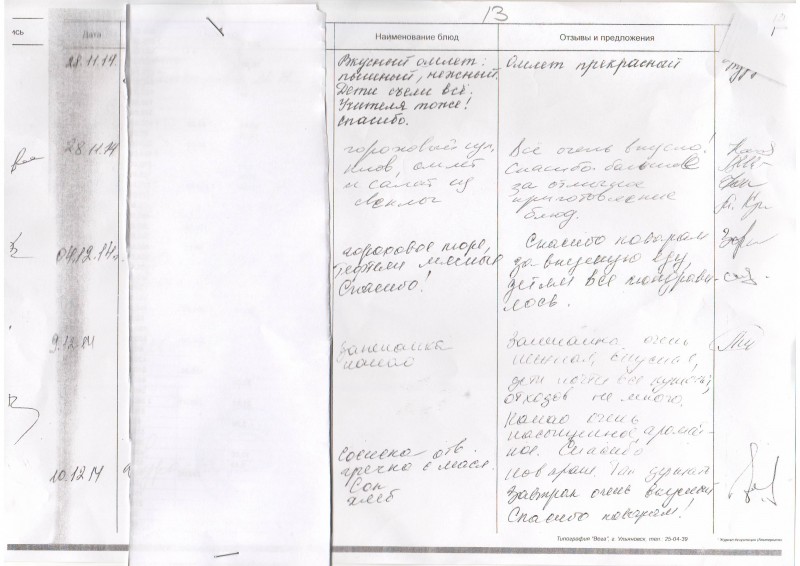 13
ись
Дата
Наименование блюд
Отзывы и предложения
28.11.14
Вкусный омлет:
пышный, нежный.
Дети съели всё.
Учителя тоже!
Спасибо.
Омлет прекрасный
28.11.14
гороховый суп,
плов, омлет
и салат из
свеклы
Всё очень вкусно!
Спасибо большое
за отличное
приготовление
блюд.
04.12.14г.
гороховое пюре,
тефтели мясные
Спасибо!
Спасибо поварам
за вкусную еду,
детям всё понрави-
лось.
9.12.14
Запеканка
какао
Запеканка очень
дети почти все
отходов не много,
Какао очень
насыщенное, аромат-
ное. Спасибо
поварам.
10.12.14
Сосиска отв.
гречка с масл.
Сок
хлеб
Завтрак очень вкусный
Спасибо поварам!
Типография "Вега", г. Ульяновск, тел. 25-04-39